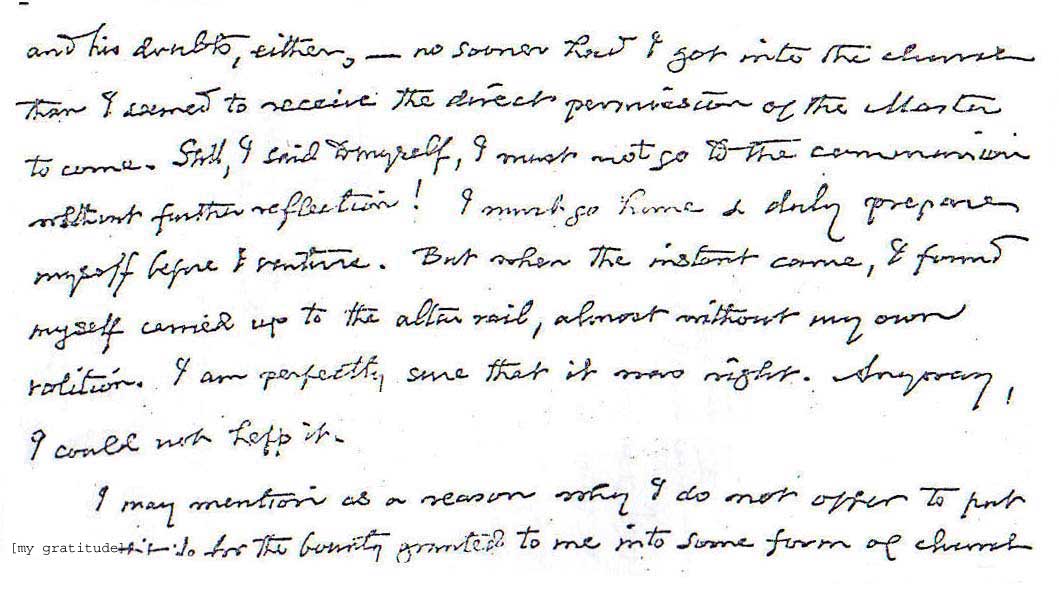 and his doubts, either, — no sooner had I got into the church
than I seemed to receive the direct permission of the Master
to come. Still, I said to myself, I must not go to the communion
without further reflection! I must go home & duly prepare
myself before I venture. But when the instant came, I found
myself carried up to the altar rail, almost without my own
volition. I am perfectly sure that it was right. Anyway,
I could not help it.
I may mention as a reason why I do not offer to put
[my gratitude] for the bounty granted to me into some form of church